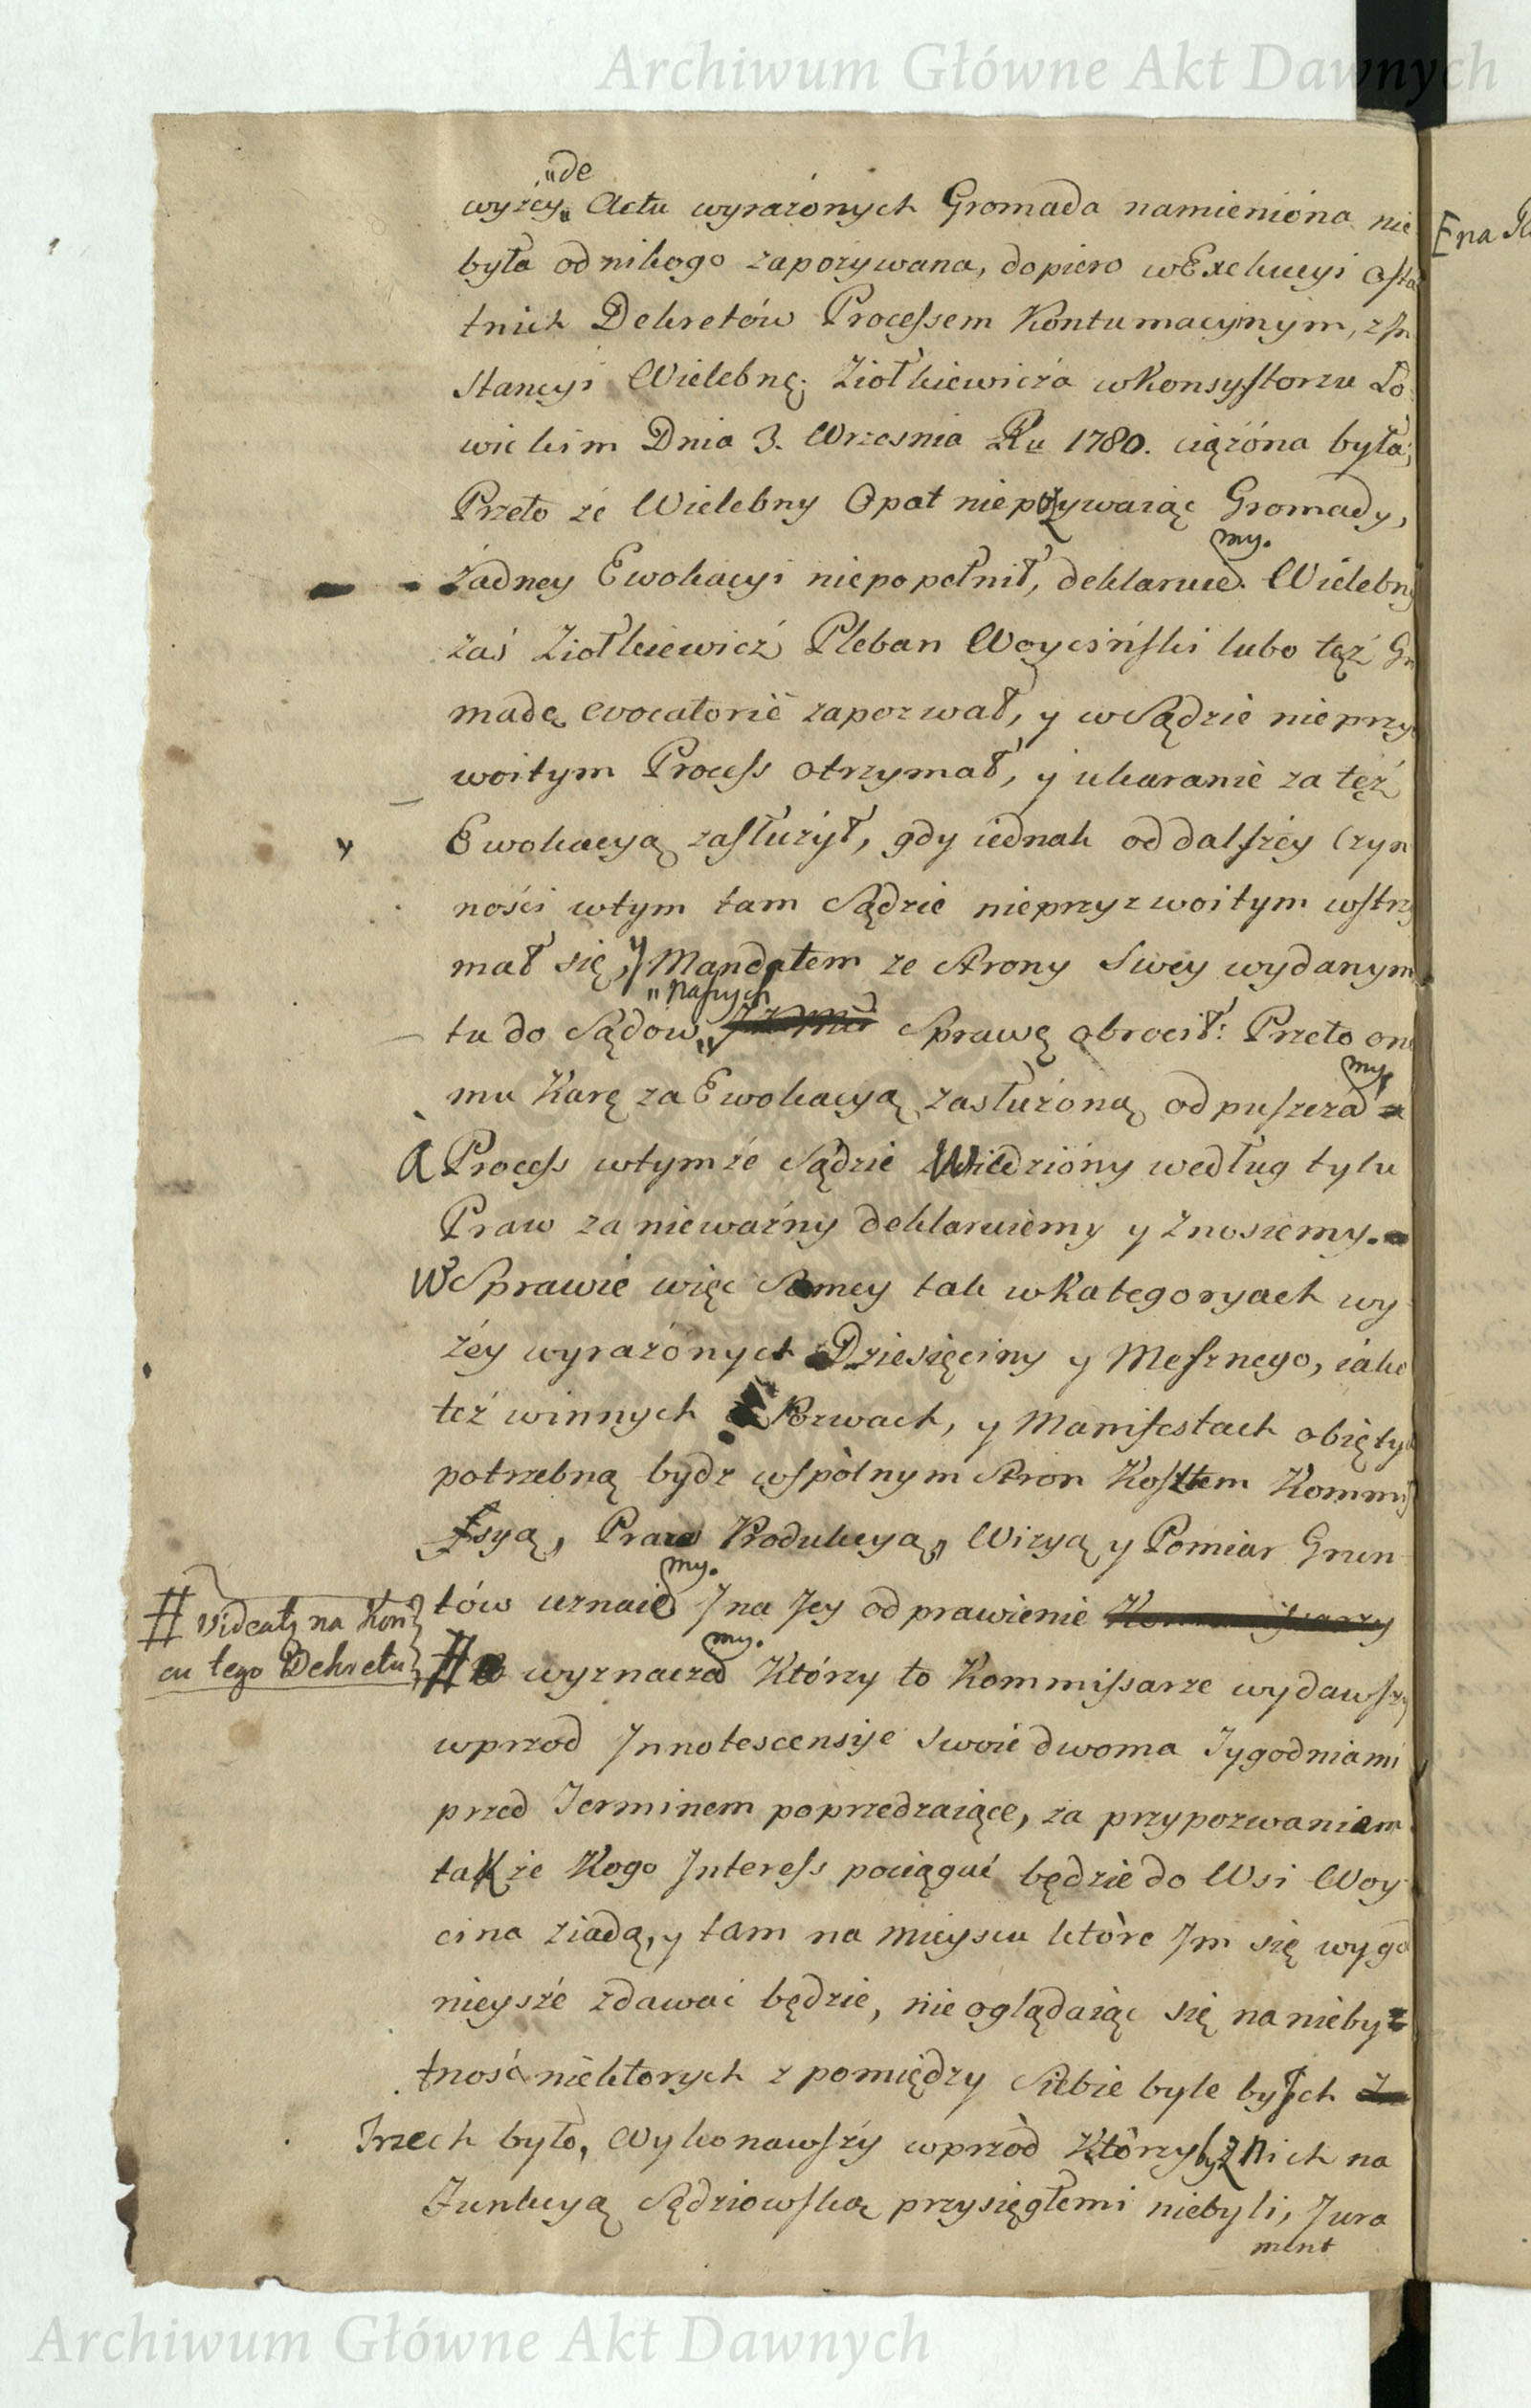 Archiwum Główne Akt Dawnych
„de
wyżey„ Actu wyrażonych Gromada namieniona nie
była od nikogo zapozywana, dopiero w Exekucyi osta
tnich Dekretów Processem Kontumacyinym, z In
stancyi Wielebnę. Ziołkiewicza w Konsystorzu Ło
wickim Dnia 3. Wrzesnia Ru 1780. ciążona była;
Przeto że Wielebny Opat niepozywaiąc Gromady,
my.
żadney Ewokacyi niepopełnił, deklaruie. Wielebny
zaś Ziołkiewicz Pleban Woyciński lubo tęż Gro
madę evocatorie zapozwał, y w Sądzie nieprzy
woitym Process otrzymał, y ukaranie za tęż
Ewokacyą zasłużył, gdy iednak od dalszey Czyn
ności w tym tam Sądzie nieprzyzwoitym wstrzy
mał się, y Mandatem ze Strony Swey wydanym
„naszych
tu do Sądow„ Sprawę obrocił: Przeto one
my
mu Karę za Ewokacyą zasłużoną odpuszcza
a Process w tymże Sądzie Wiedziony według tylu
Praw za nieważny deklaruiemy y znosiemy.
W Sprawie więc Samey tak w Kategoryach wy
żey wyrażonych Dziesięciny y Mesznego, iako
też w innych Pozwach, y Manifestach obięty
potrzebną bydz wspólnym Stron Kosztem Kommis
syą, Praw Produkcyą, Wizyą y Pomiar Grun
my.
tów uznaie I na Jey odprawienie Kommissarzy
# Videatz na Koń
cu tego Dekretu
my.
# wyznacza Którzy to Kommissarze wydawszy
wprzod Innotescensye Swoie dwoma Tygodniami
przed Terminem poprzedzaiące, za przypozwaniem
także Kogo Interess pociągać będzie do Wsi Woy
cina ziadą, y tam na mieyscu które Im się wygo
nieysze zdawać będzie, nie oglądaiąc się na nieby
tność niektorych z pomiędzy Siebie byle bych
Trzech było, Wykonawszy wprzód Którzyby z nich na
Funkcyą Sędziowską przysięgłemi niebyli, Jura
ment
Archiwum Główne Akt Dawnych